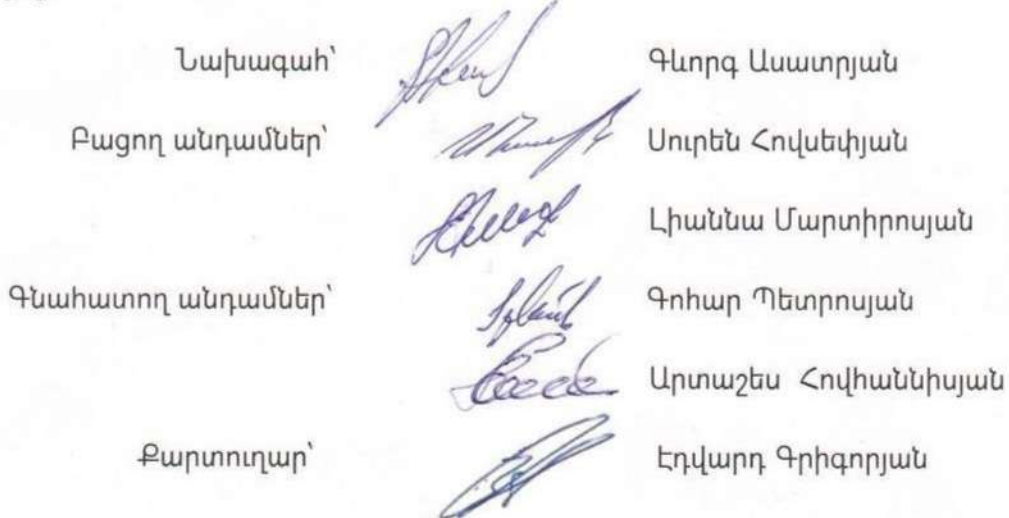 Նախագահ՝ Գևորգ Ասատրյան
Բացող անդամներ՝ Սուրեն Հովսեփյան
Լիաննա Մարտիրոսյան
Գնահատող անդամներ՝ Գոհար Պետրոսյան
Արտաշես Հովհաննիսյան
Քարտուղար՝ Էդվարդ Գրիգորյան